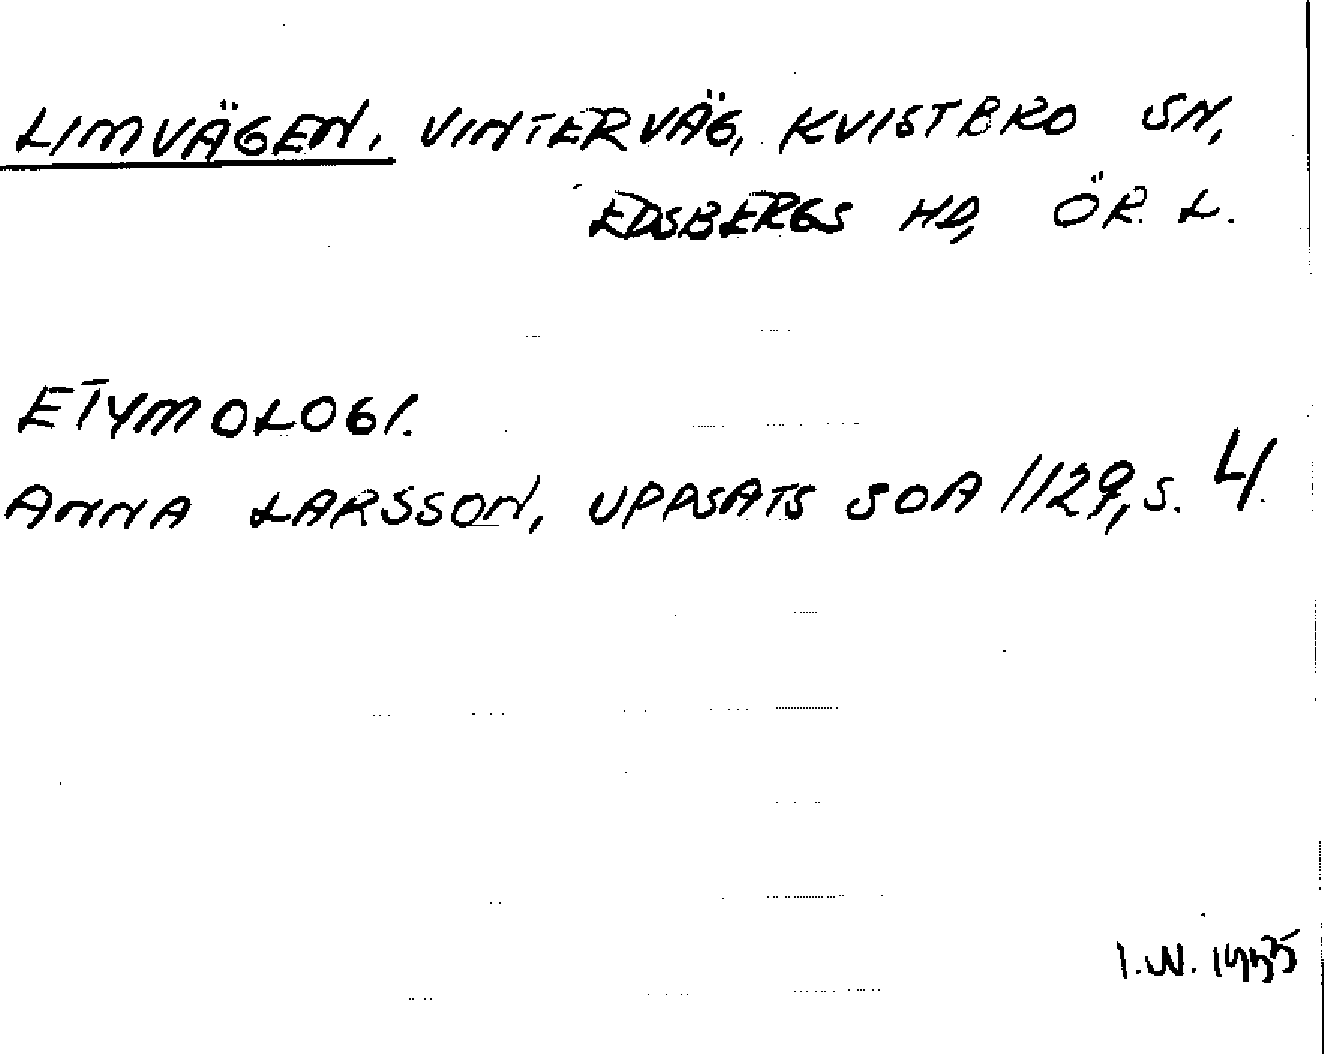 LIMVÄGEN. VINTERVÄG, KVISTBRO SN,
EDSBERGS HD, ÖR. L.
ETYMOLOGI.
ANNA LARSSON, UPPSATS SOA 1129, S. 4.
I.W.